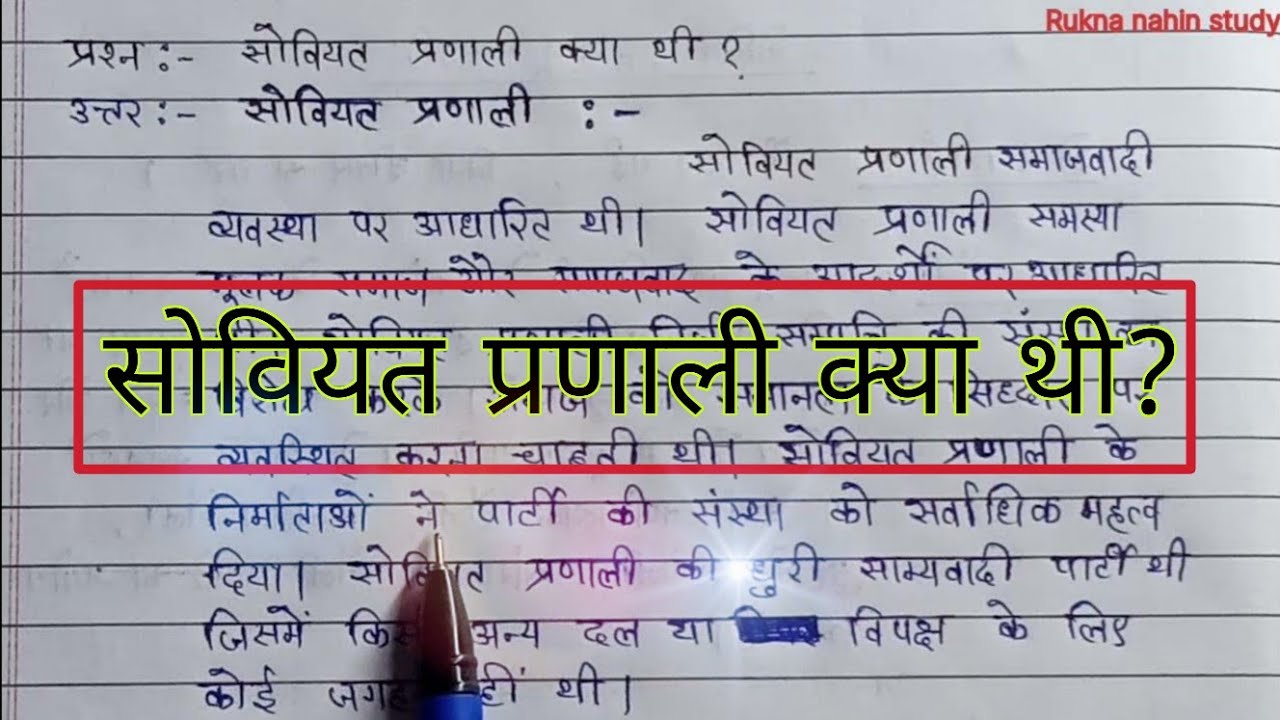 Rukna nahin study
प्रश्न :- सोवियत प्रणाली क्या थी ?
उत्तर :- सोवियत प्रणाली :-
सोवियत प्रणाली समाजवादी
व्यवस्था पर आधारित थी। सोवियत प्रणाली समस्या
मूलक समाज और समाजवाद के आदर्शों पर आधारित
सोवियत प्रणाली क्या थी?
व्यवस्थित करना चाहती थी। सोवियत प्रणाली के
निर्माताओं ने पार्टी की संस्था को सर्वाधिक महत्व
दिया। सोवियत प्रणाली की धुरी साम्यवादी पार्टी थी
जिसमें किसी अन्य दल या विपक्ष के लिए
कोई जगह नहीं थी।